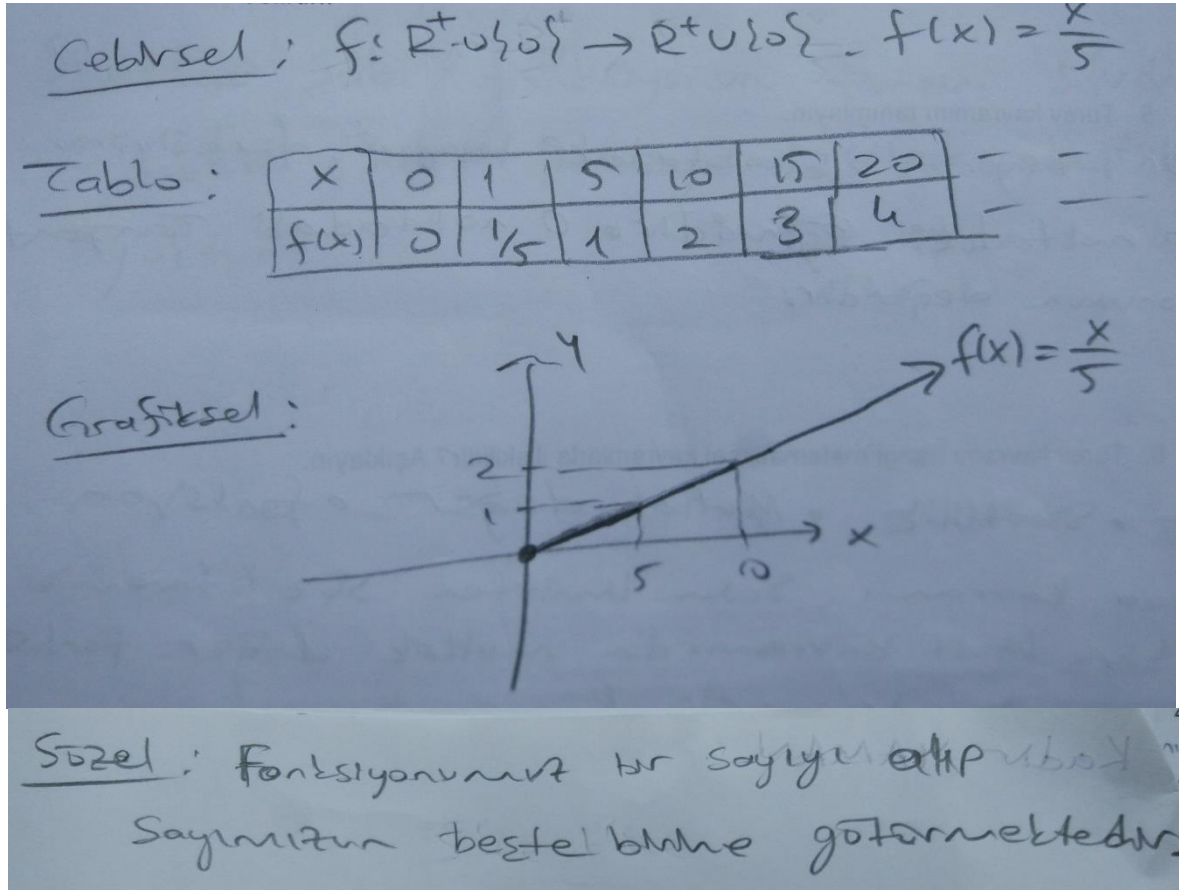 Cebirsel : f: R⁺∪{0} → R⁺∪{0} . f(x) = x/5
Tablo : x 0 1 5 10 15 20 - -
f(x) 0 1/5 1 2 3 4 - -
y
f(x) = x/5
Grafiksel :
2
1
x
5 10
Sözel : Fonksiyonumuz bir sayıyı alıp
Sayımızın beşte birine götürmektedir